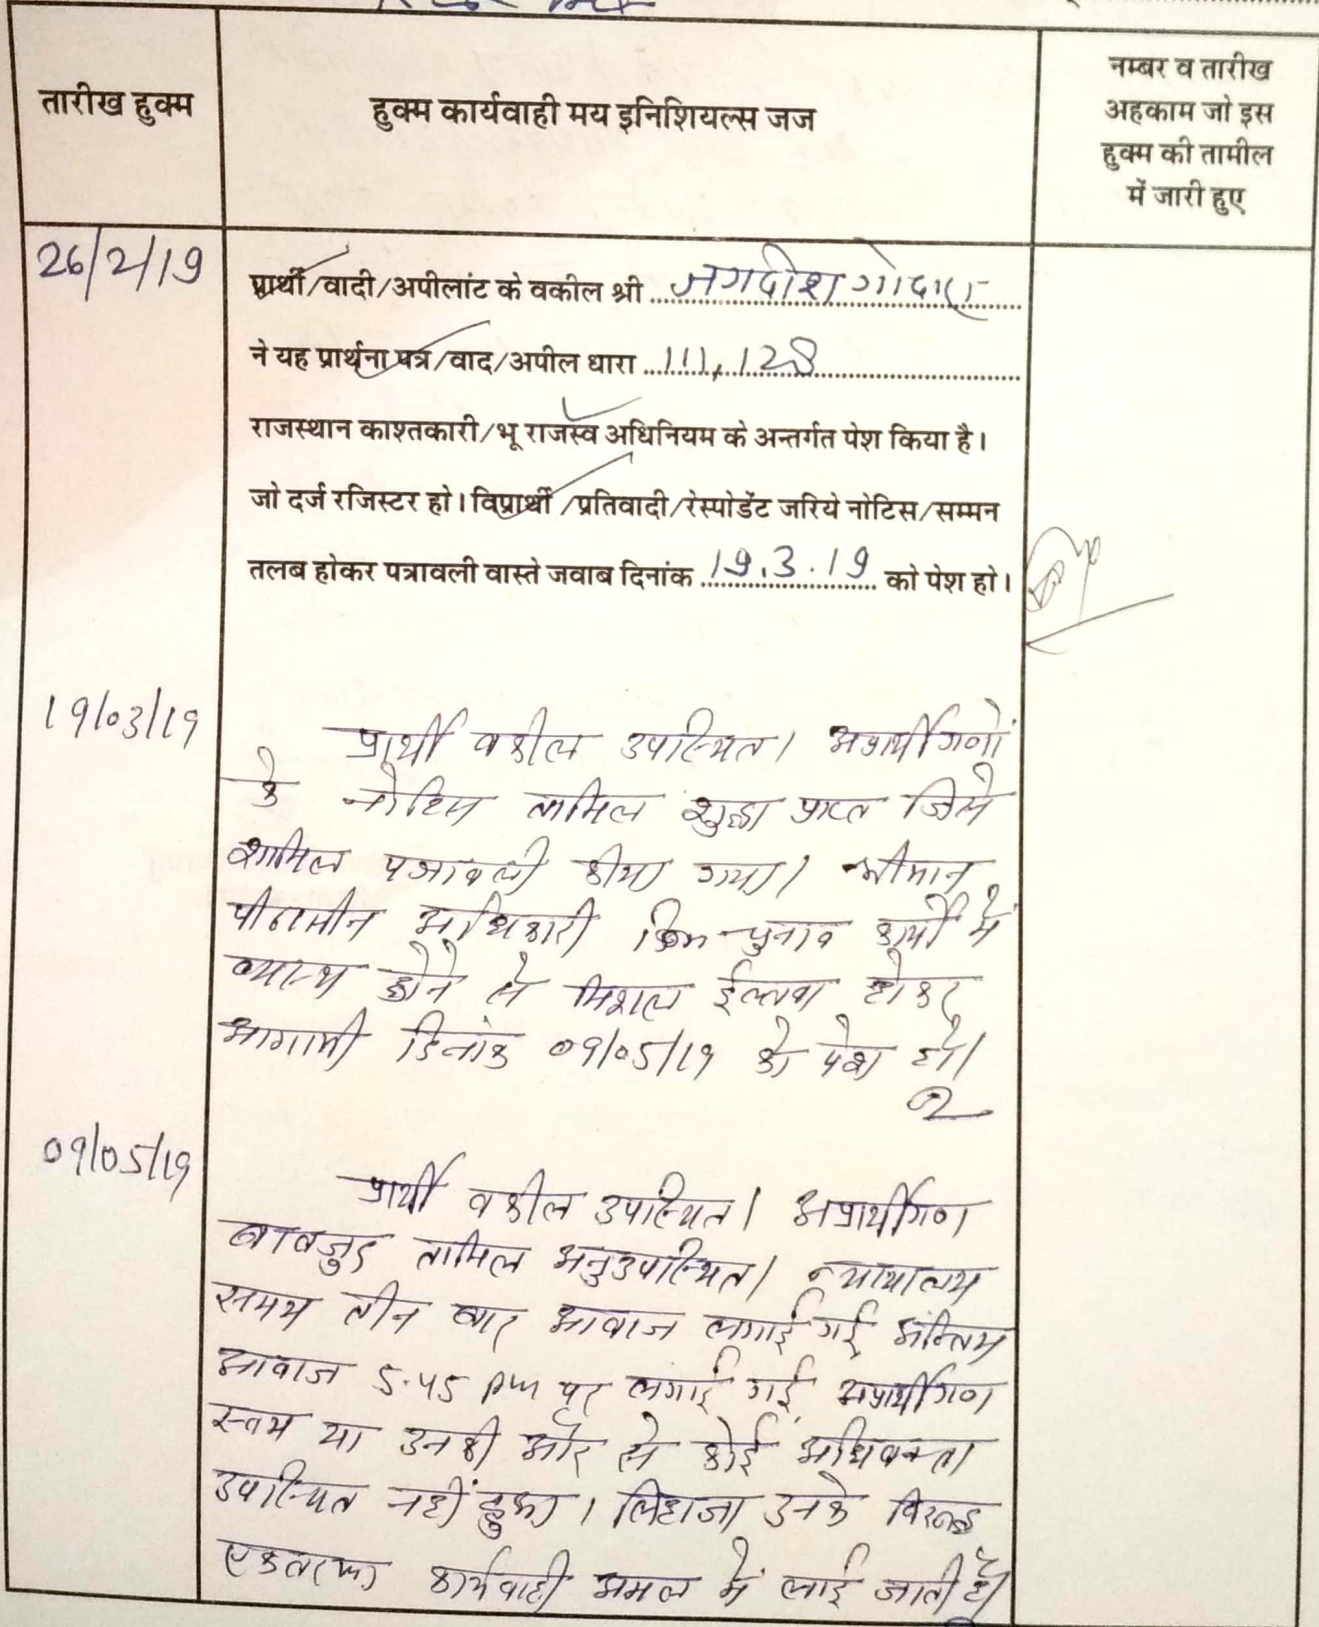 तारीख हुक्म
हुक्म कार्यवाही मय इनिशियल्स जज
नम्बर व तारीख
अहकाम जो इस
हुक्म की तामील
में जारी हुए
26/2/19
प्रार्थी/वादी/अपीलांट के वकील श्री जगदीश गोदारा
ने यह प्रार्थना पत्र/वाद/अपील धारा 111, 128
राजस्थान काश्तकारी/भू राजस्व अधिनियम के अन्तर्गत पेश किया है।
जो दर्ज रजिस्टर हो। विप्रार्थी/प्रतिवादी/रेस्पोडेंट जरिये नोटिस/सम्मन
तलब होकर पत्रावली वास्ते जवाब दिनांक 19.3.19 को पेश हो।
19/03/19
प्रार्थी वकील उपस्थित। अप्रार्थीगणों
के नोटिस तामिल शुद्धा प्राप्त जिसे
शामिल पत्रावली कीया गया। श्रीमान
पीठासीन अधिकारी चुनाव कार्यो में
व्यस्थ होने से मिशल ईल्तवा होकर
आगामी दिनांक 09/05/19 को पेश हो।
09/05/19
प्रार्थी वकील उपस्थित। अप्रार्थीगण
बावजुद तामिल अनुउपस्थित। न्यायालय
समय तीन बार आवाज लगाई गई अन्तिम
आवाज 5.45 pm पर लगाई गई अप्रार्थीगण
स्वयं या उनकी और से कोई अधिवक्ता
उपस्थित नहीं हुआ। लिहाजा उनके विरूद्ध
एकतरफा कार्यवाही अमल में लाई जाती है।